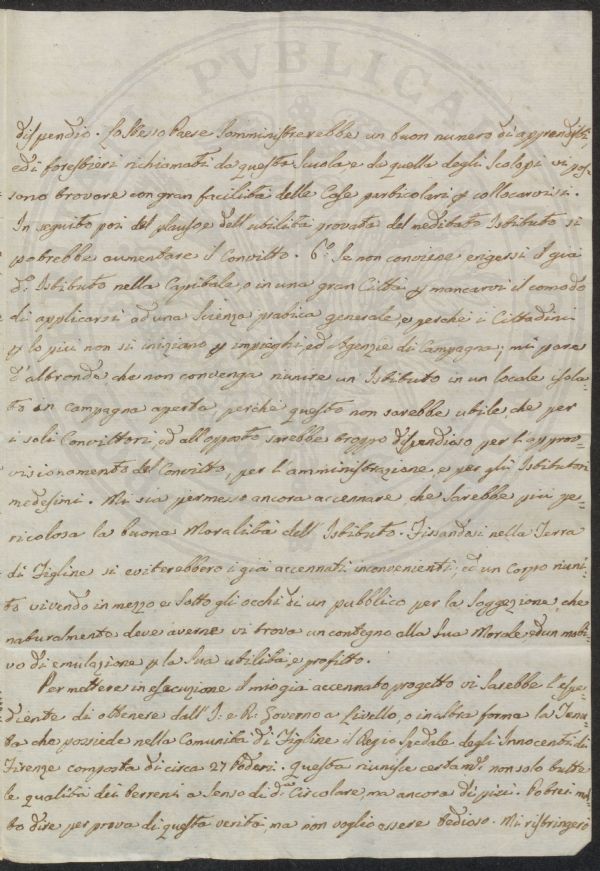 dispendio. Lo stesso Paese somministrerebbe un buon numero di apprendisti,
ed i forestieri richiamati da questa Scuola e da quella degli Scolopi vi pos=
sono trovare con gran facilità delle Case particolari p collocarvisi.
In seguito poi del plauso e dell'utilità provata del meditato Istituto si
potrebbe aumentare il Convitto. 6.° Se non conviene erigersi il già
d.° Istituto nella Capitale, o in una gran Città p mancarvi il comodo
di applicarsi ad una Scienza pratica generale, e perchè i Cittadini
p lo più non si iniziano p impieghi, ed Agenzie di Campagna; mi pare
d'altronde che non convenga riunire un Istituto in un locale isola
to in campagna aperta, perchè questo non sarebbe utile, che per
i soli Convittori, ed all'opposto sarebbe troppo dispendioso per l'approv=
visionamento del Convitto, per l'amministrazione, e per gli Istitutori
medesimi. Mi sia permesso ancora accennare, che sarebbe più pe=
ricolosa la buona Moralità dell'Istituto. Fissandosi nella Terra
di Figline si eviterebbero i già accennati inconvenienti, ed un Corpo riuni=
to vivendo in mezzo e sotto gli occhi di un pubblico per la Soggezione, che
naturalmente deve averne vi trova un contegno alla Sua Morale, ed un moti=
vo di emulazione p la Sua utilità, e profitto.
Per mettere in esecuzione il mio già accennato progetto vi sarebbe l'espe=
diente di ottenere dall'I: e R: Governo a Livello, o in altra forma la Tenu=
ta che possiede nella Comunità di Figline il Regio Spedale degli Innocenti di
Firenze composta di circa 27 Poderi. Questa riunisce certam.te non solo tutte
le qualità dei terreni a senso di d.ta Circolare, ma ancora di più. Potrei mol=
to dire per prova di questa verità, ma non voglio essere tedioso. Mi ristringerò
PVBLICA